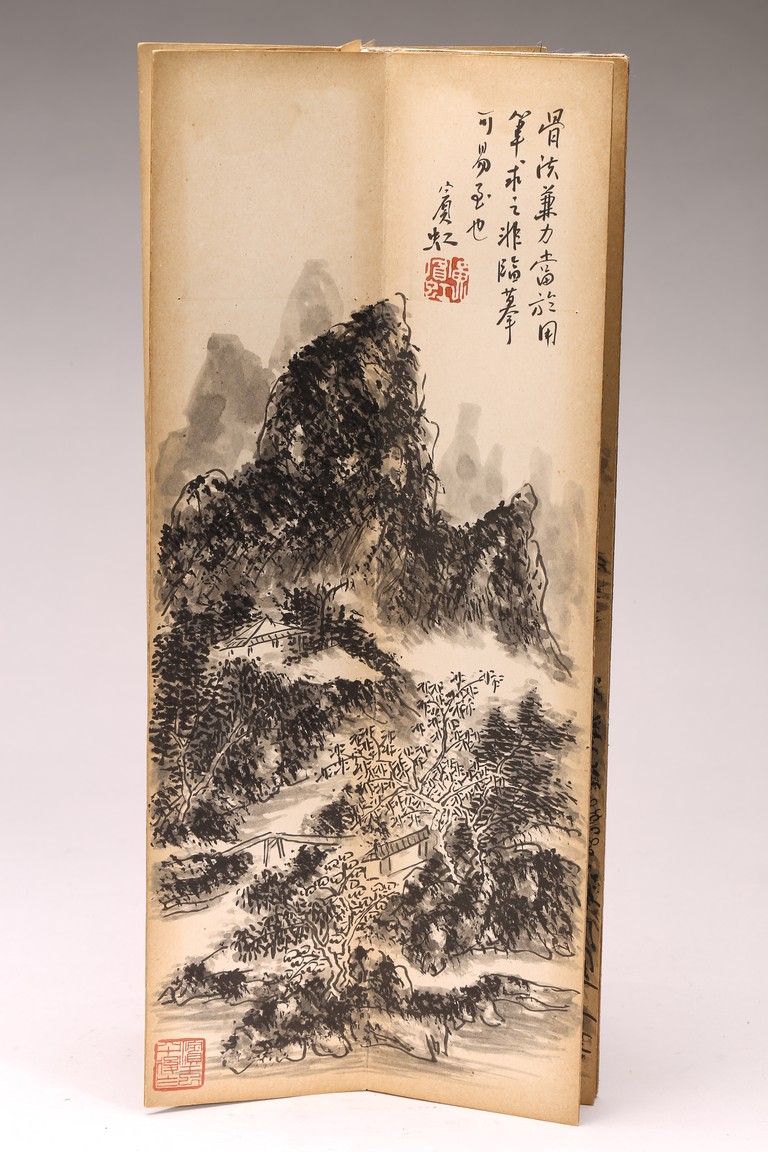 骨法兼力當於用
筆求之非臨摹
可易至也
賓虹
黃賓虹